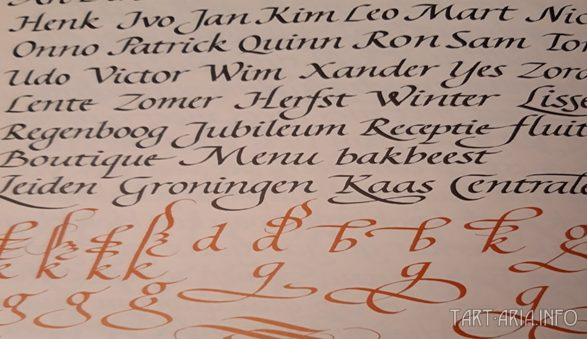 Henk Ivo Jan Kim Leo Mart
Onno Patrick Quinn Ron Sam
Udo Victor Wim Xander Yes
Lente Zomer Herfst Winter
Regenboog Jubileum Receptie fluit
Boutique Menu bakbeest
Leiden Groningen Kaas Centrale
k k k k d d b b k g
k k k k g g
g g g g
TART-ARIA.INFO